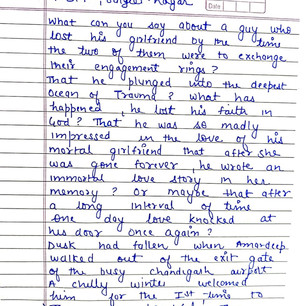 Nagar
Date
What can you say about a guy who
lost his girlfriend by the time
the two of them were to exchange
their engagement rings?
That he plunged into the deepest
Ocean of Trauma? What has
happened, he lost his faith in
God? That he was so madly
impressed in the love of his
mortal girlfriend that after she
was gone forever, he wrote an
immortal love story in her
memory? Or maybe that after
a long interval of time
One day love knocked at
his door once again?
Dusk had fallen when Amardeep
walked out of the exit gate
of the busy Chandigarh airport
A chilly winter welcomed
him for the Ist time to